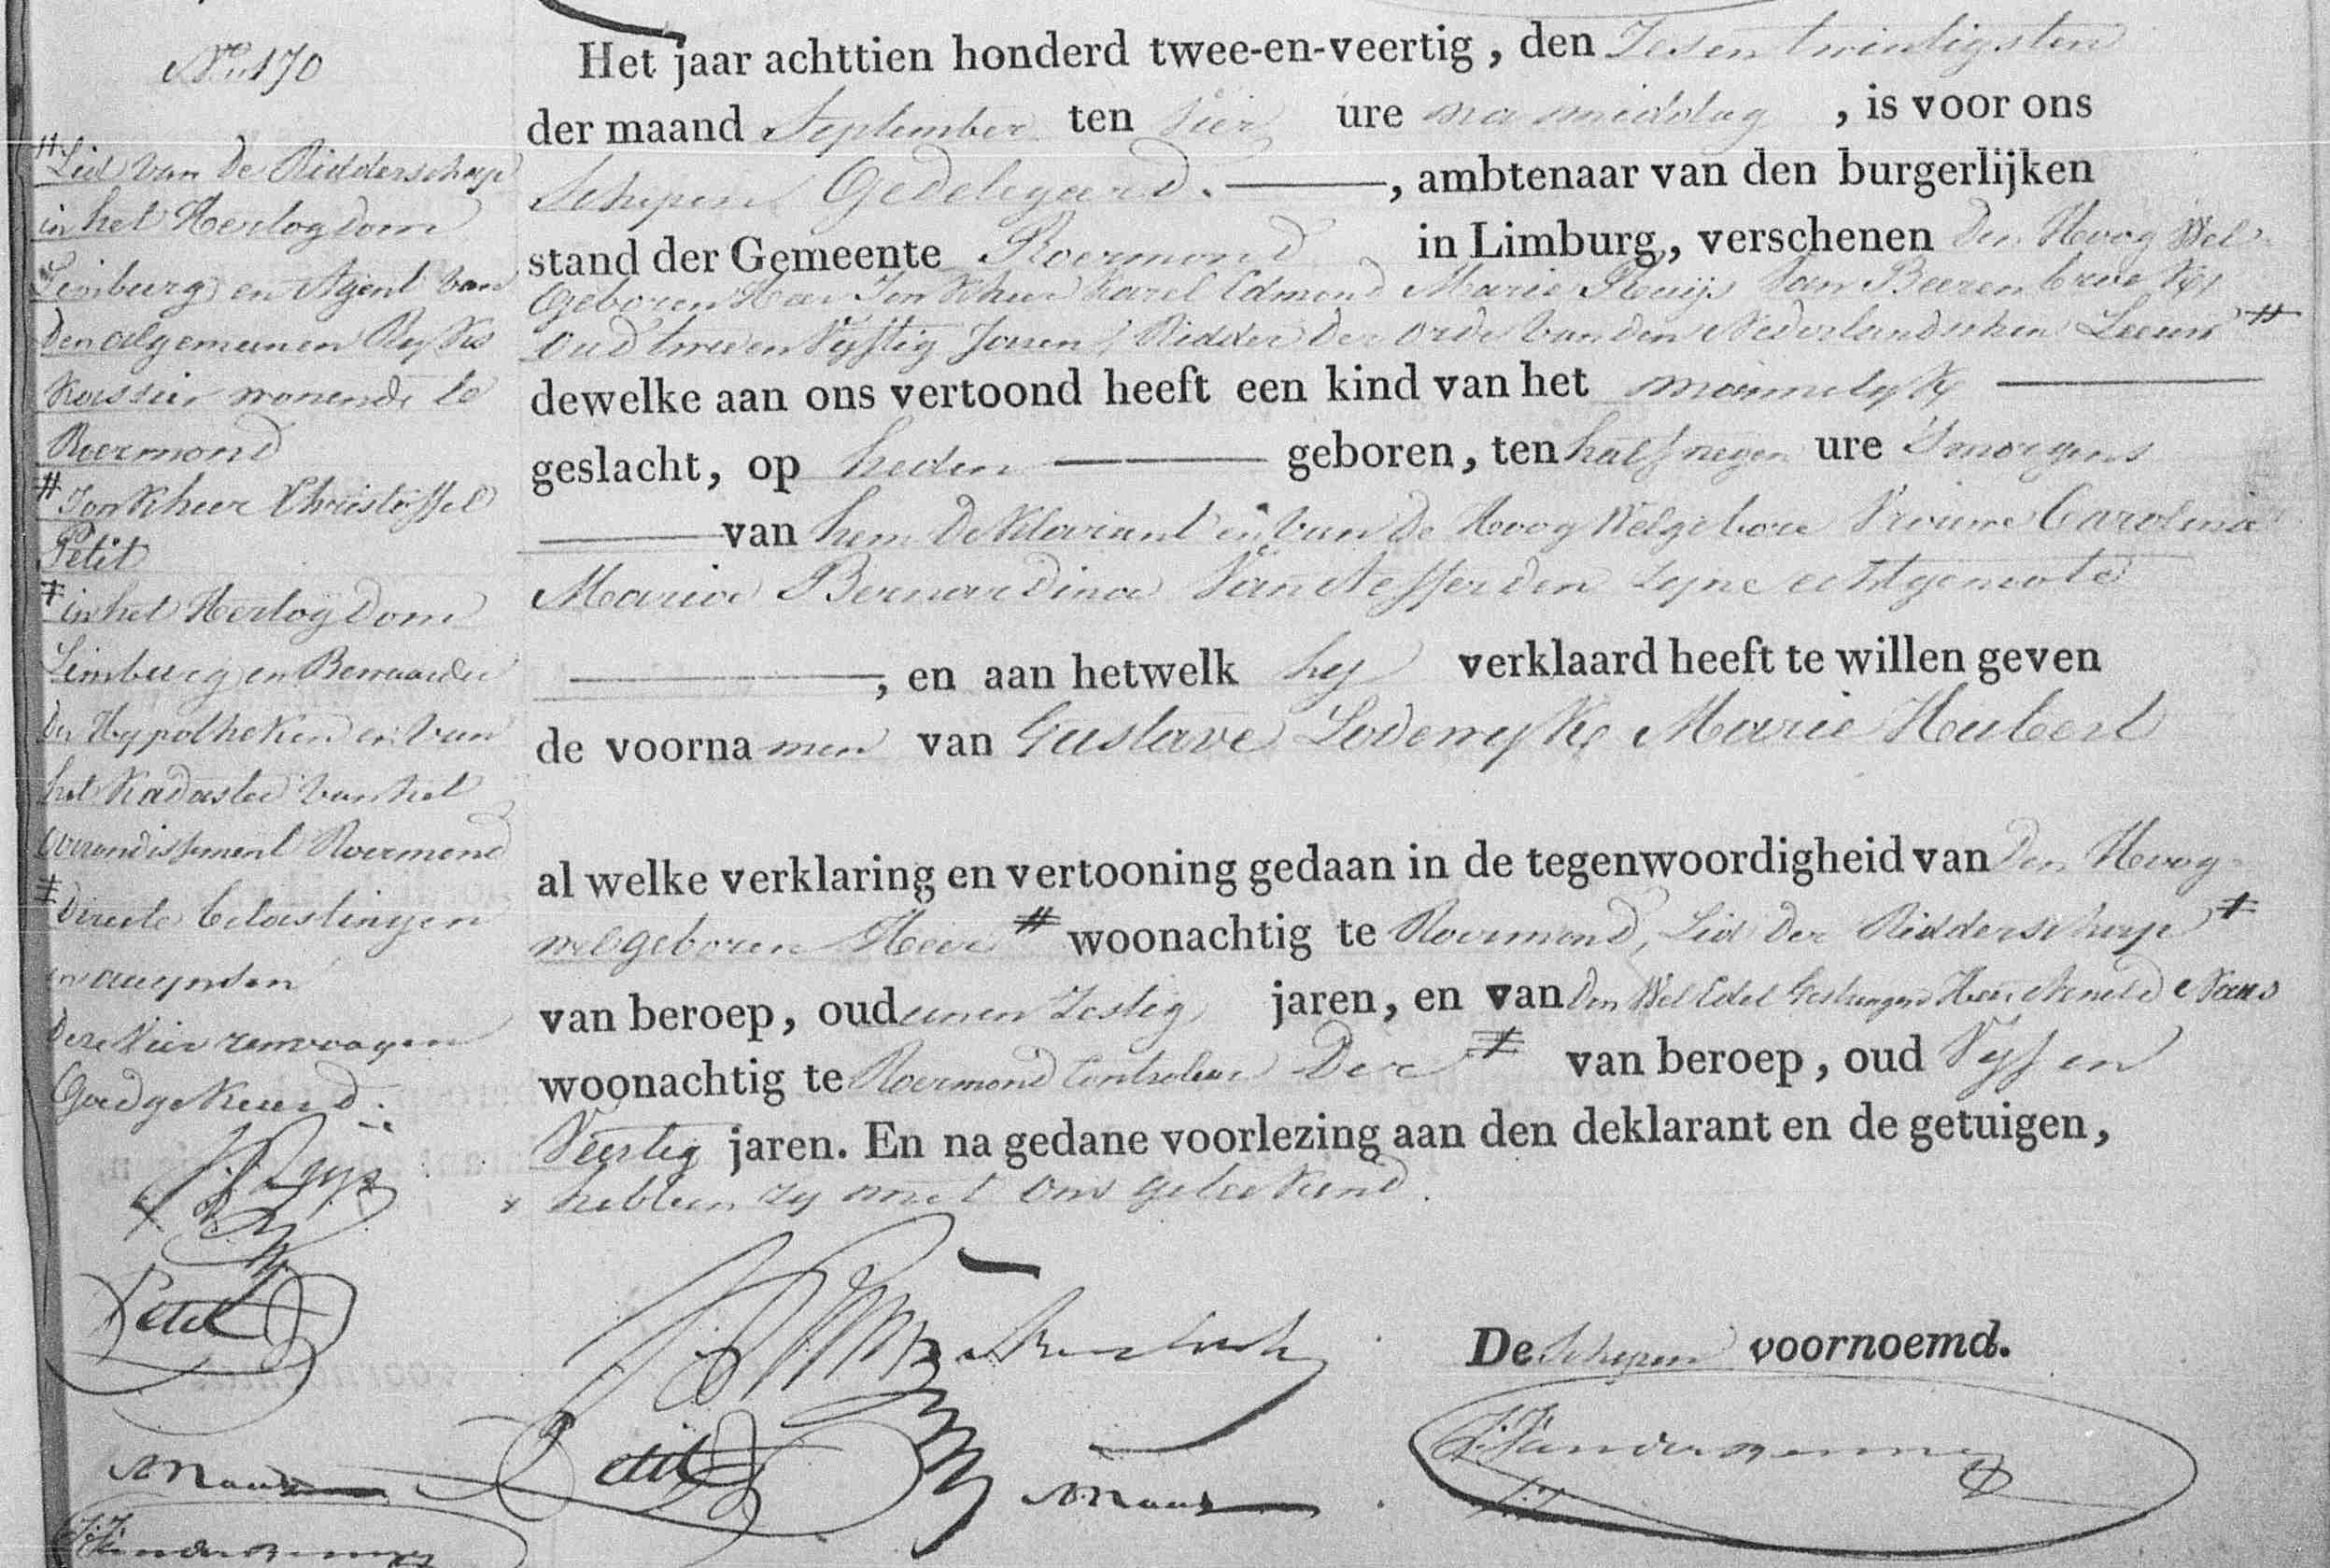 No. 170
Het jaar achttien honderd twee-en-veertig, den Zesentwintigsten
der maand September ten Vier ure na middag, is voor ons
Schepen Gedelegeerd. ———, ambtenaar van den burgerlijken
stand der Gemeente Roermond in Limburg, verschenen den Hoog Wel
Geboren Heer Jonkheer Karel Edmond Marie Ruijs Van Beerenbroek
oud twee en Vyftig Jaren, Ridder der orde van den Nederlandschen Leeuw #
dewelke aan ons vertoond heeft een kind van het mannelyk ———
geslacht, op heden ——— geboren, ten half negen ure 'Smorgens
——— van hem deklarant en van de Hoog Welgebore Vrouwe Carolina
Maria Bernardina Van Aefferden zyne echtgenoote
———, en aan hetwelk hy verklaard heeft te willen geven
de voornamen van Gustave Lodewyk Marie Hubert
al welke verklaring en vertooning gedaan in de tegenwoordigheid van den Hoog
welgeboren Heer # woonachtig te Roermond, Lid der Ridderschap #
van beroep, oud eenen Zestig jaren, en van den Wel Edel Gestrengen Heer Arnold Naus
woonachtig te Roermond Controleur Der # van beroep, oud Vyf en
Veertig jaren. En na gedane voorlezing aan den deklarant en de getuigen,
hebben zy met ons geteekend.
# Lid van de Ridderschap
in het Hertogdom
Limburg en Agent van
den algemeenen Ryks
Kassier wonende te
Roermond
# Jonkheer Christoffel
Petit
# in het Hertogdom
Limburg en Bewaarder
der Hypotheken en van
het Kadaster van het
arrondissement Roermond
# directe belastingen
en accynsen
Deze Vier renvooyen
Goedgekeurd.
Ruys
Petit
ANaus
Petit
ANaus
De Schepen voornoemd.